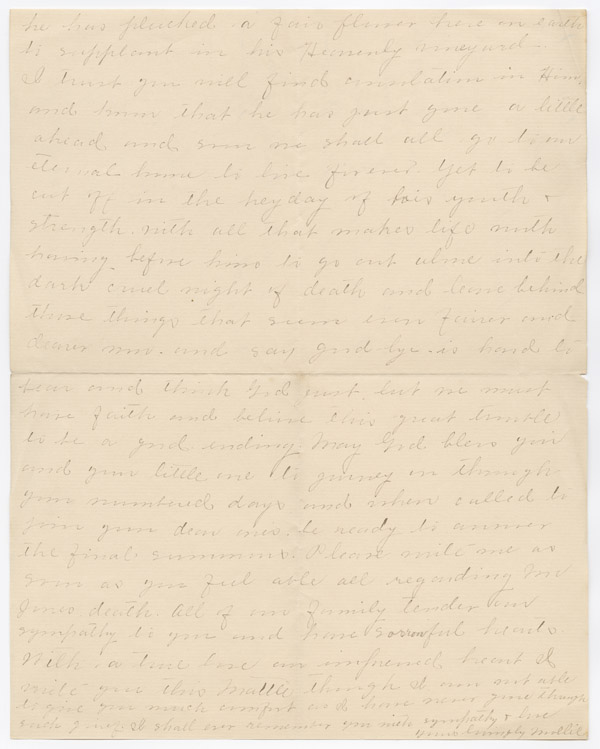 he has plucked a fair flower here on earth
to supplant in his Heavenly vineyard.
I trust you will find consolation in Him,
and know that he has just gone a little
ahead and soon we shall all go to an
eternal home to live forever. Yet to be
cut off in the heyday of his youth &
strength with all that makes life worth
having before him to go out alone into the
dark cruel night of death and leave behind
those things that seem even fairer and
dearer now and say good-bye is hard to
bear and think God just, but we must
have faith and believe this great trouble
to be a good ending. May God bless you
and your little one to journey on through
your numbered days and when called to
join your dear ones be ready to answer
the final summons. Please write me as
soon as you feel able all regarding Mr
Jones death. All of our family tender our
sympathy to you and have sorrowful hearts.
With a true love an heart I
write you this Mattie though I am not able
to give you much comfort as I have never gone through
such grief. I shall ever remember you with sympathy & love
yours lovingly Mollie